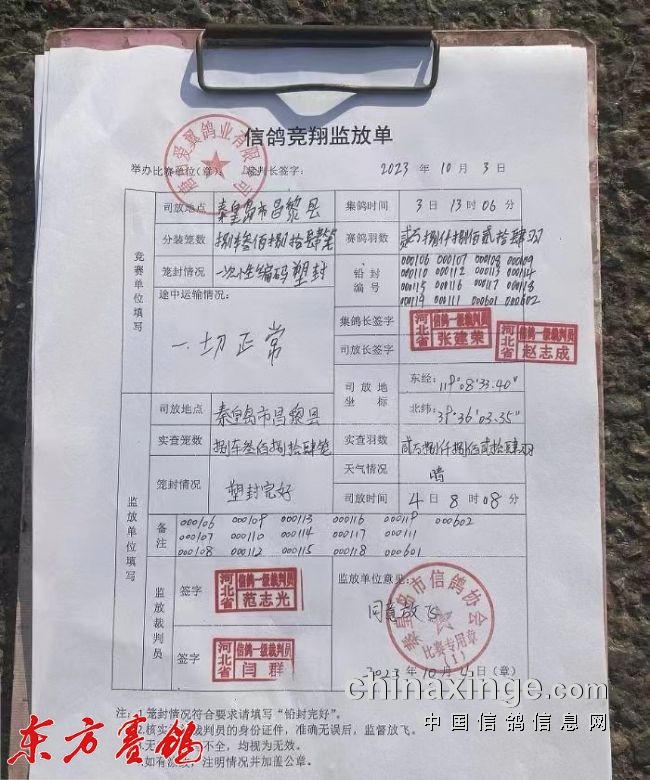 信鸽竞翔监放单
举办比赛单位(章): 裁判长签字: 2023 年 10 月 3 日
竞赛单位填写
司放地点 秦皇岛市昌黎县 集鸽时间 3 日 13 时 06 分
分装笼数 捌车叁佰捌拾肆笼 赛鸽羽数 贰万捌仟捌佰贰拾肆羽
笼封情况 一次性编码塑封 铅封编号 000106 000107 000108 000109
000110 000112 000113 000114
000115 000116 000117 000118
000119 000111 000601 000602
途中运输情况:
一切正常
集鸽长签字 河北省 信鸽一级裁判员 张建荣
司放长签字 河北省 信鸽一级裁判员 赵志成
司放地坐标 东经: 119°08'33.40"
北纬: 39°36'03.55"
监放单位填写
司放地点 秦皇岛市昌黎县
实查笼数 捌车叁佰捌拾肆笼 实查羽数 贰万捌仟捌佰贰拾肆羽
笼封情况 塑封完好 天气情况 晴
司放时间 4 日 8 时 08 分
备注 000106 000109 000113 000116 000119 000602
000107 000110 000114 000117 000111
000108 000112 000115 000118 000601
监放裁判员
签字 河北省 信鸽一级裁判员 范志光
签字 河北省 信鸽一级裁判员 闫群
监放单位意见:
同意放飞
秦皇岛市信鸽协会
比赛专用章
(1)
2023 年 10 月 4 日 (章)
注: 1.笼封情况符合要求请填写“铅封完好”。
2.核实 裁判员的身份证件,准确无误后,监督放飞。
3.无 不全,均视为无效。
如有 ,注明情况并加盖公章。
东方赛鸽
chinaxinge.com
中国信鸽信息网